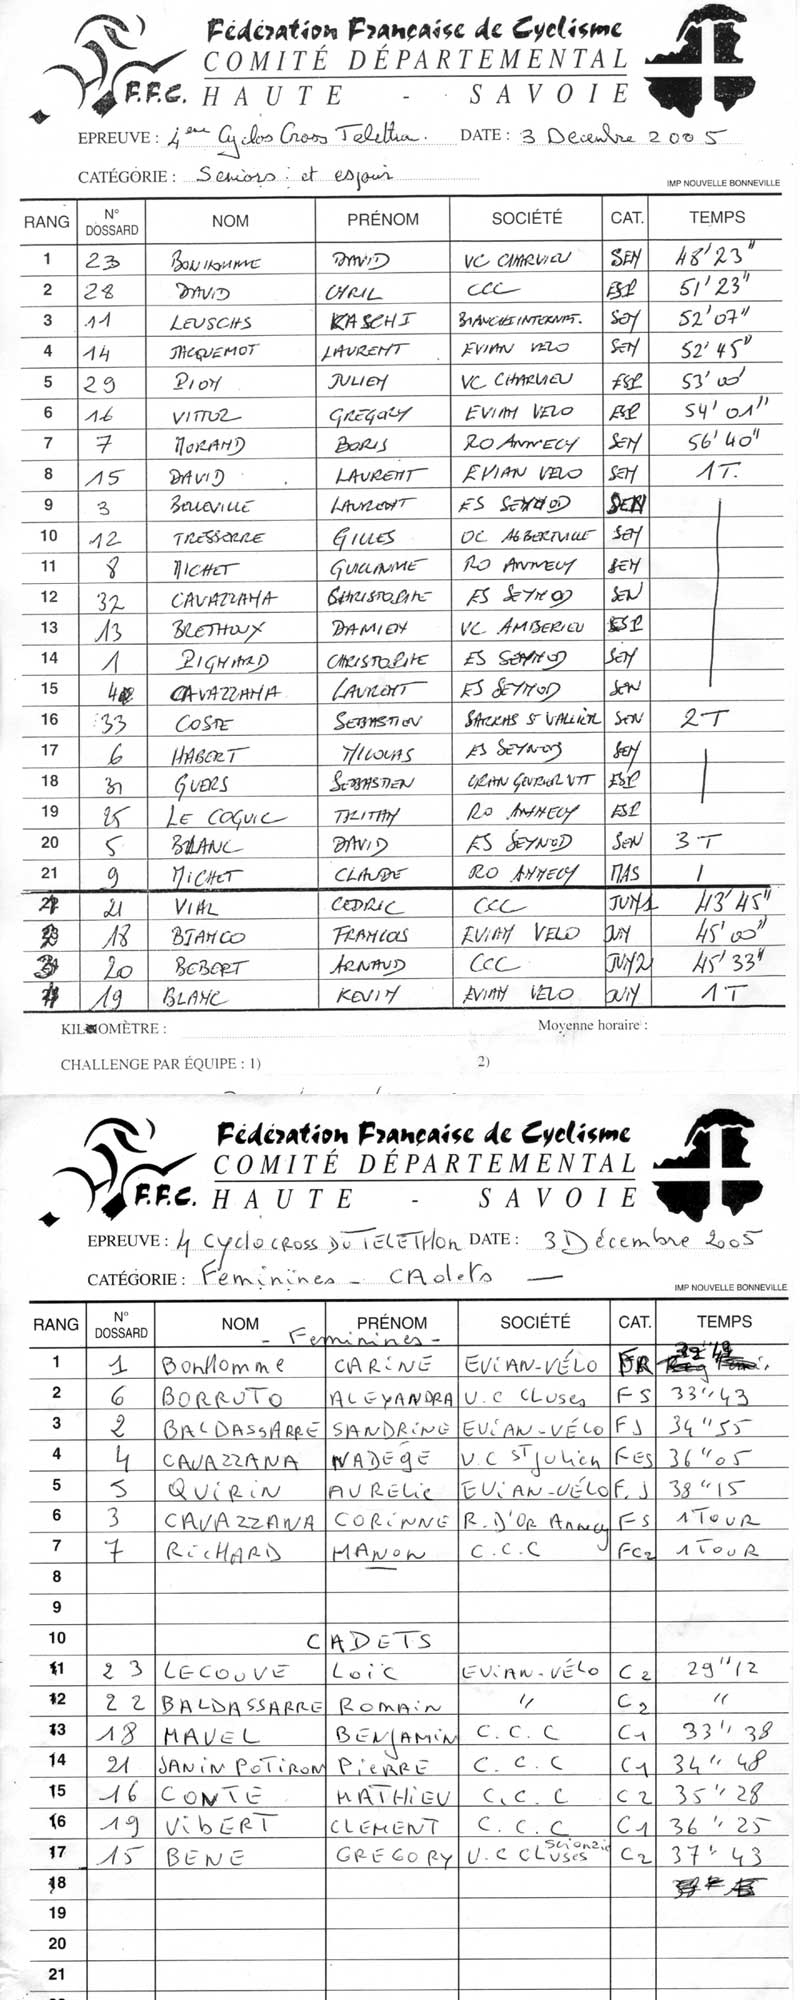 Fédération Française de Cyclisme
COMITÉ DÉPARTEMENTAL
F.F.C. HAUTE - SAVOIE
EPREUVE : 4eme Cyclos Cross DATE : 3 Décembre 2005
CATÉGORIE : Seniors : et espoir
IMP NOUVELLE BONNEVILLE
RANG N° DOSSARD NOM PRÉNOM SOCIÉTÉ CAT. TEMPS
1 23 BONHOMME DAVID VC CHARVIEU SEN 48'23"
2 28 DAVID CYRIL CCC ESP 51'23"
3 11 KASCHI SEN 52'07"
4 14 JACQUEMOT LAURENT EVIAN VELO SEN 52'45"
5 29 PION JULIEN VC CHARVIEU ESP 53'00'
6 16 VITTOZ GREGORY EVIAN VELO ESP 54'01"
7 7 MORAND BORIS RO ANNECY SEN 56'40"
8 15 DAVID LAURENT EVIAN VELO SEN 1T.
9 3 LAURENT ES SEYNOD SEN
10 12 GILLES OC ALBERTVILLE SEN
11 8 MICHET GUILLAUME RO ANNECY SEN
12 32 CAVAZZANA CHRISTOPHE ES SEYNOD SEN
13 13 BRETHOUX DAMIEN VC AMBERIEU ESP
14 1 PIGNARD CHRISTOPHE ES SEYNOD SEN
15 CAVAZZANA LAURENT ES SEYNOD SEN
16 33 COSTE SEBASTIEN SARRAS ST VALLIER SEN 2T
17 6 HABERT NICOLAS ES SEYNOD SEN
18 31 GUERS SEBASTIEN CRAN GEVRIER VTT ESP
19 25 LE COGUIC RO ANNECY ESP
20 5 BLANC DAVID ES SEYNOD SEN 3T
21 9 MICHET CLAUDE RO ANNECY MAS
21 VIAL CEDRIC CCC JUN1 43'45"
18 BIANCO FRANCOIS EVIAN VELO JUN 45'00"
20 BEBERT ARNAUD CCC JUN2 45'33"
19 BLANC KEVIN EVIAN VELO JUN 1T
KILOMÈTRE : Moyenne horaire :
CHALLENGE PAR ÉQUIPE : 1) 2)
Fédération Française de Cyclisme
COMITÉ DÉPARTEMENTAL
F.F.C. HAUTE - SAVOIE
EPREUVE : 4 CYCLOCROSS DU TELETHON DATE : 3 Décembre 2005
CATÉGORIE : Feminines - CAdets
IMP NOUVELLE BONNEVILLE
RANG N° DOSSARD NOM PRÉNOM SOCIÉTÉ CAT. TEMPS
- Feminines -
1 1 BonHomme CARINE EVIAN-VÉLO
2 6 BORRUTO ALEXANDRA U.C CLuses FS 33"43
3 2 BALDASSARRE SANDRINE EVIAN-VÉLO FJ 34"55
4 4 CAVAZZANA NADÉGE V.C ST Julien FES 36"05
5 5 QUIRIN AURELIE EVIAN-VÉLO F.J 38"15
6 3 CAVAZZANA CORINNE R.D'OR Annecy FS 1 TOUR
7 7 RICHARD MANON C.C.C FC2 1 TOUR
8
9
10 CADETS
11 23 LECOUVÉ LOÏC EVIAN-VÉLO C2 29"12
12 22 BALDASSARRE ROMAIN " C2 "
13 18 MAVEL BENJAMIN C.C.C C1 33"38
14 21 JANIN POTIRON PIERRE C.C.C C1 34"48
15 16 CONTE MATHIEU C.C.C C2 35"28
16 19 VIBERT CLEMENT C.C.C C1 36"25
17 15 BENE GREGORY U.C CLuses Scionzier C2 37"43
18
19
20
21